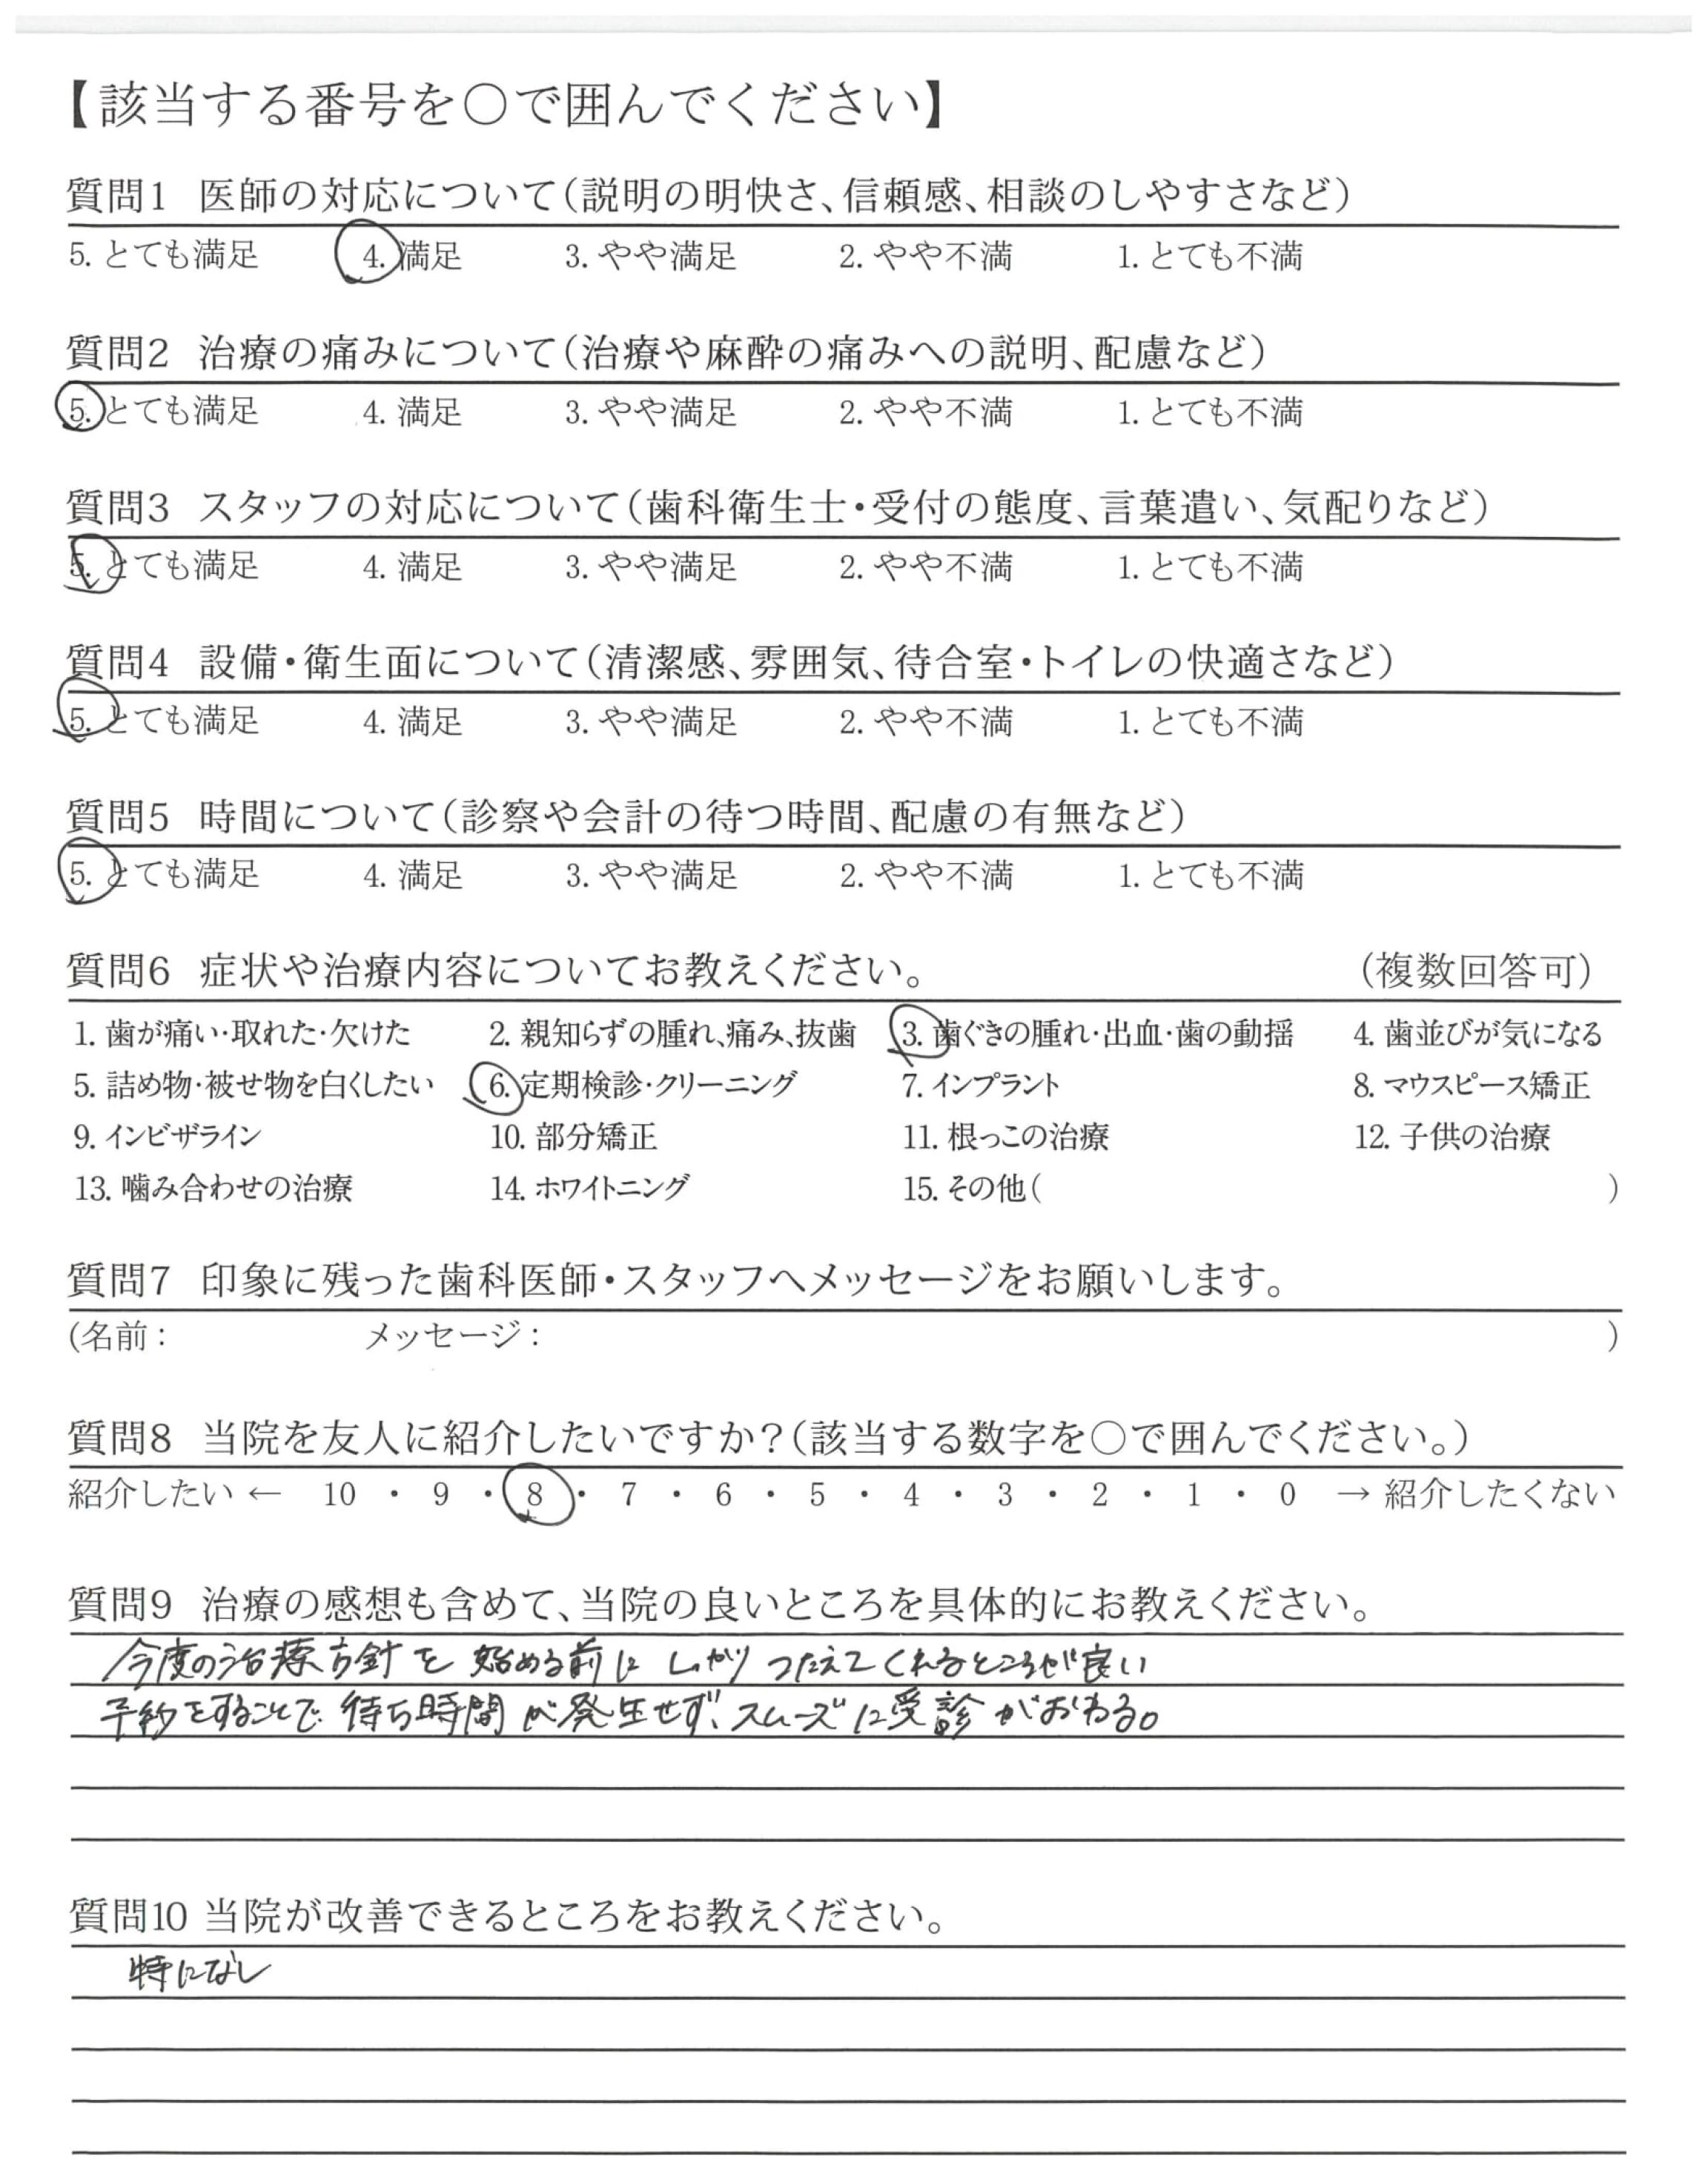 【該当する番号を〇で囲んでください】
質問1 医師の対応について(説明の明快さ、信頼感、相談のしやすさなど)
5. とても満足 4. 満足 3. やや満足 2. やや不満 1. とても不満
質問2 治療の痛みについて(治療や麻酔の痛みへの説明、配慮など)
5. とても満足 4. 満足 3. やや満足 2. やや不満 1. とても不満
質問3 スタッフの対応について(歯科衛生士・受付の態度、言葉遣い、気配りなど)
5. とても満足 4. 満足 3. やや満足 2. やや不満 1. とても不満
質問4 設備・衛生面について(清潔感、雰囲気、待合室・トイレの快適さなど)
5. とても満足 4. 満足 3. やや満足 2. やや不満 1. とても不満
質問5 時間について(診察や会計の待つ時間、配慮の有無など)
5. とても満足 4. 満足 3. やや満足 2. やや不満 1. とても不満
質問6 症状や治療内容についてお教えください。 (複数回答可)
1. 歯が痛い・取れた・欠けた 2. 親知らずの腫れ、痛み、抜歯 3. 歯ぐきの腫れ・出血・歯の動揺 4. 歯並びが気になる
5. 詰め物・被せ物を白くしたい 6. 定期検診・クリーニング 7. インプラント 8. マウスピース矯正
9. インビザライン 10. 部分矯正 11. 根っこの治療 12. 子供の治療
13. 噛み合わせの治療 14. ホワイトニング 15. その他( )
質問7 印象に残った歯科医師・スタッフへメッセージをお願いします。
(名前: メッセージ: )
質問8 当院を友人に紹介したいですか?(該当する数字を〇で囲んでください。)
紹介したい ← 10 ・ 9 ・ 8 ・ 7 ・ 6 ・ 5 ・ 4 ・ 3 ・ 2 ・ 1 ・ 0 → 紹介したくない
質問9 治療の感想も含めて、当院の良いところを具体的にお教えください。
今度の治療方針を始める前にしっかりつたえてくれるところが良い
予約をすることで待ち時間が発生せず、スムーズに受診がおわる。
質問10 当院が改善できるところをお教えください。
特になし